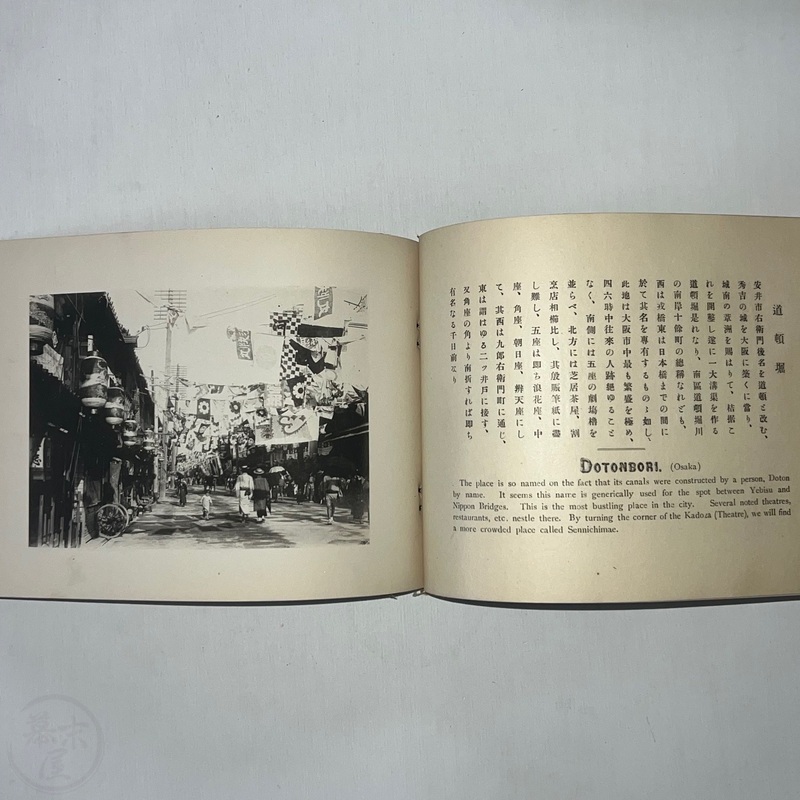 道頓堀
安井市右衛門後名を道頓と改む、
秀吉の城を大阪に築くに當り、
城南の葦洲を賜はりて、拮据こ
れを開鑿し遂に一大溝渠を作る
道頓堀是れなり、南區道頓堀川
の南岸十餘町の總稱なれども、
西は戎橋東は日本橋までの間に
於て其名を專有するものゝ如し、
此地は大阪市中最も繁盛を極め、
四六時中往來の人跡絶ゆること
なく、南側には五座の劇塲櫓を
並らべ、北方には芝居茶屋、割
烹店相櫛比し、其殷賑筆紙に盡
し難し、五座は即ち浪花座、中
座、角座、朝日座、辨天座にし
て、其西は九郎右衛門町に通じ、
東は謂はゆる二ッ井戸に接す、
又角座の角より南折すれば即ち
有名なる千日前なり
DOTONBORI. (Osaka)
The place is so named on the fact that its canals were constructed by a person, Doton
by name. It seems this name is generically used for the spot between Yebisu and
Nippon Bridges. This is the most bustling place in the city. Several noted theatres,
restaurants, etc. nestle there. By turning the corner of the Kadoza (Theatre), we will find
a more crowded place called Sennichimae.
幕末屋